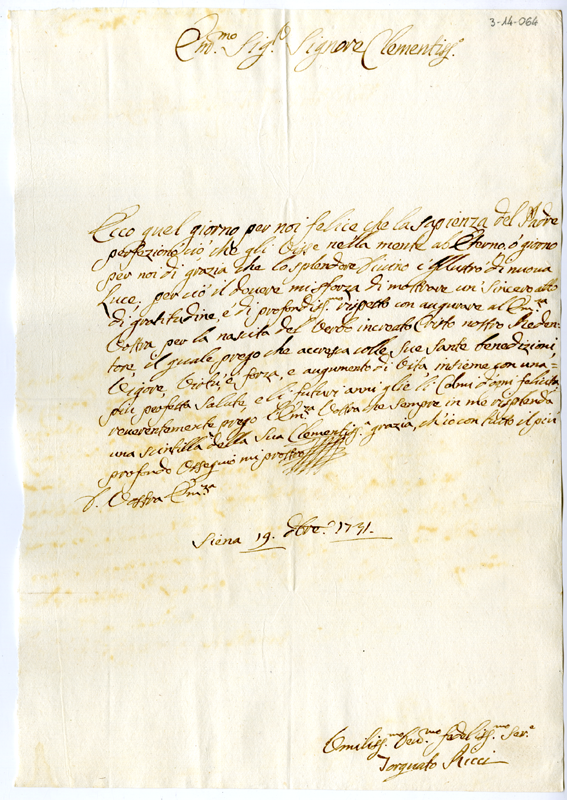 3-14-064
Em.mo Sig.re Signore Clementiss.o
Ecco quel giorno per noi felice che la sapienza del Padre
perfezionò ciò che gli disse nella mente ab Eterno, o giorno
per noi di grazia che lo splendore Divino c'illustrò di nuova
Luce, per ciò il dovere mi sforza di mostrare un sincero atto
di gratitudine, e di profondiss.o rispetto con augurare al Em.za
Vostra per la nascita del Verbo increato Cristo nostro Reden=
tore, il quale prego che accresca colle sue sante benedizioni,
Vigore, Virtù, e forza, e augumento di Vita insieme con una=
più perfetta salute, e li futuri anni glie li Colmi d'ogni felicità
reverentemente prego l'Em.za Vostra che sempre in me risplenda
una scintilla della Sua Clementiss.a grazia, ch'io con tutto il più
profondo Ossequio mi prostro
D. Vostra Em.za
Siena 19. Xbre. 1731.
Umiliss.mo Dev.mo fedeliss.mo Ser.e
Torquato Ricci